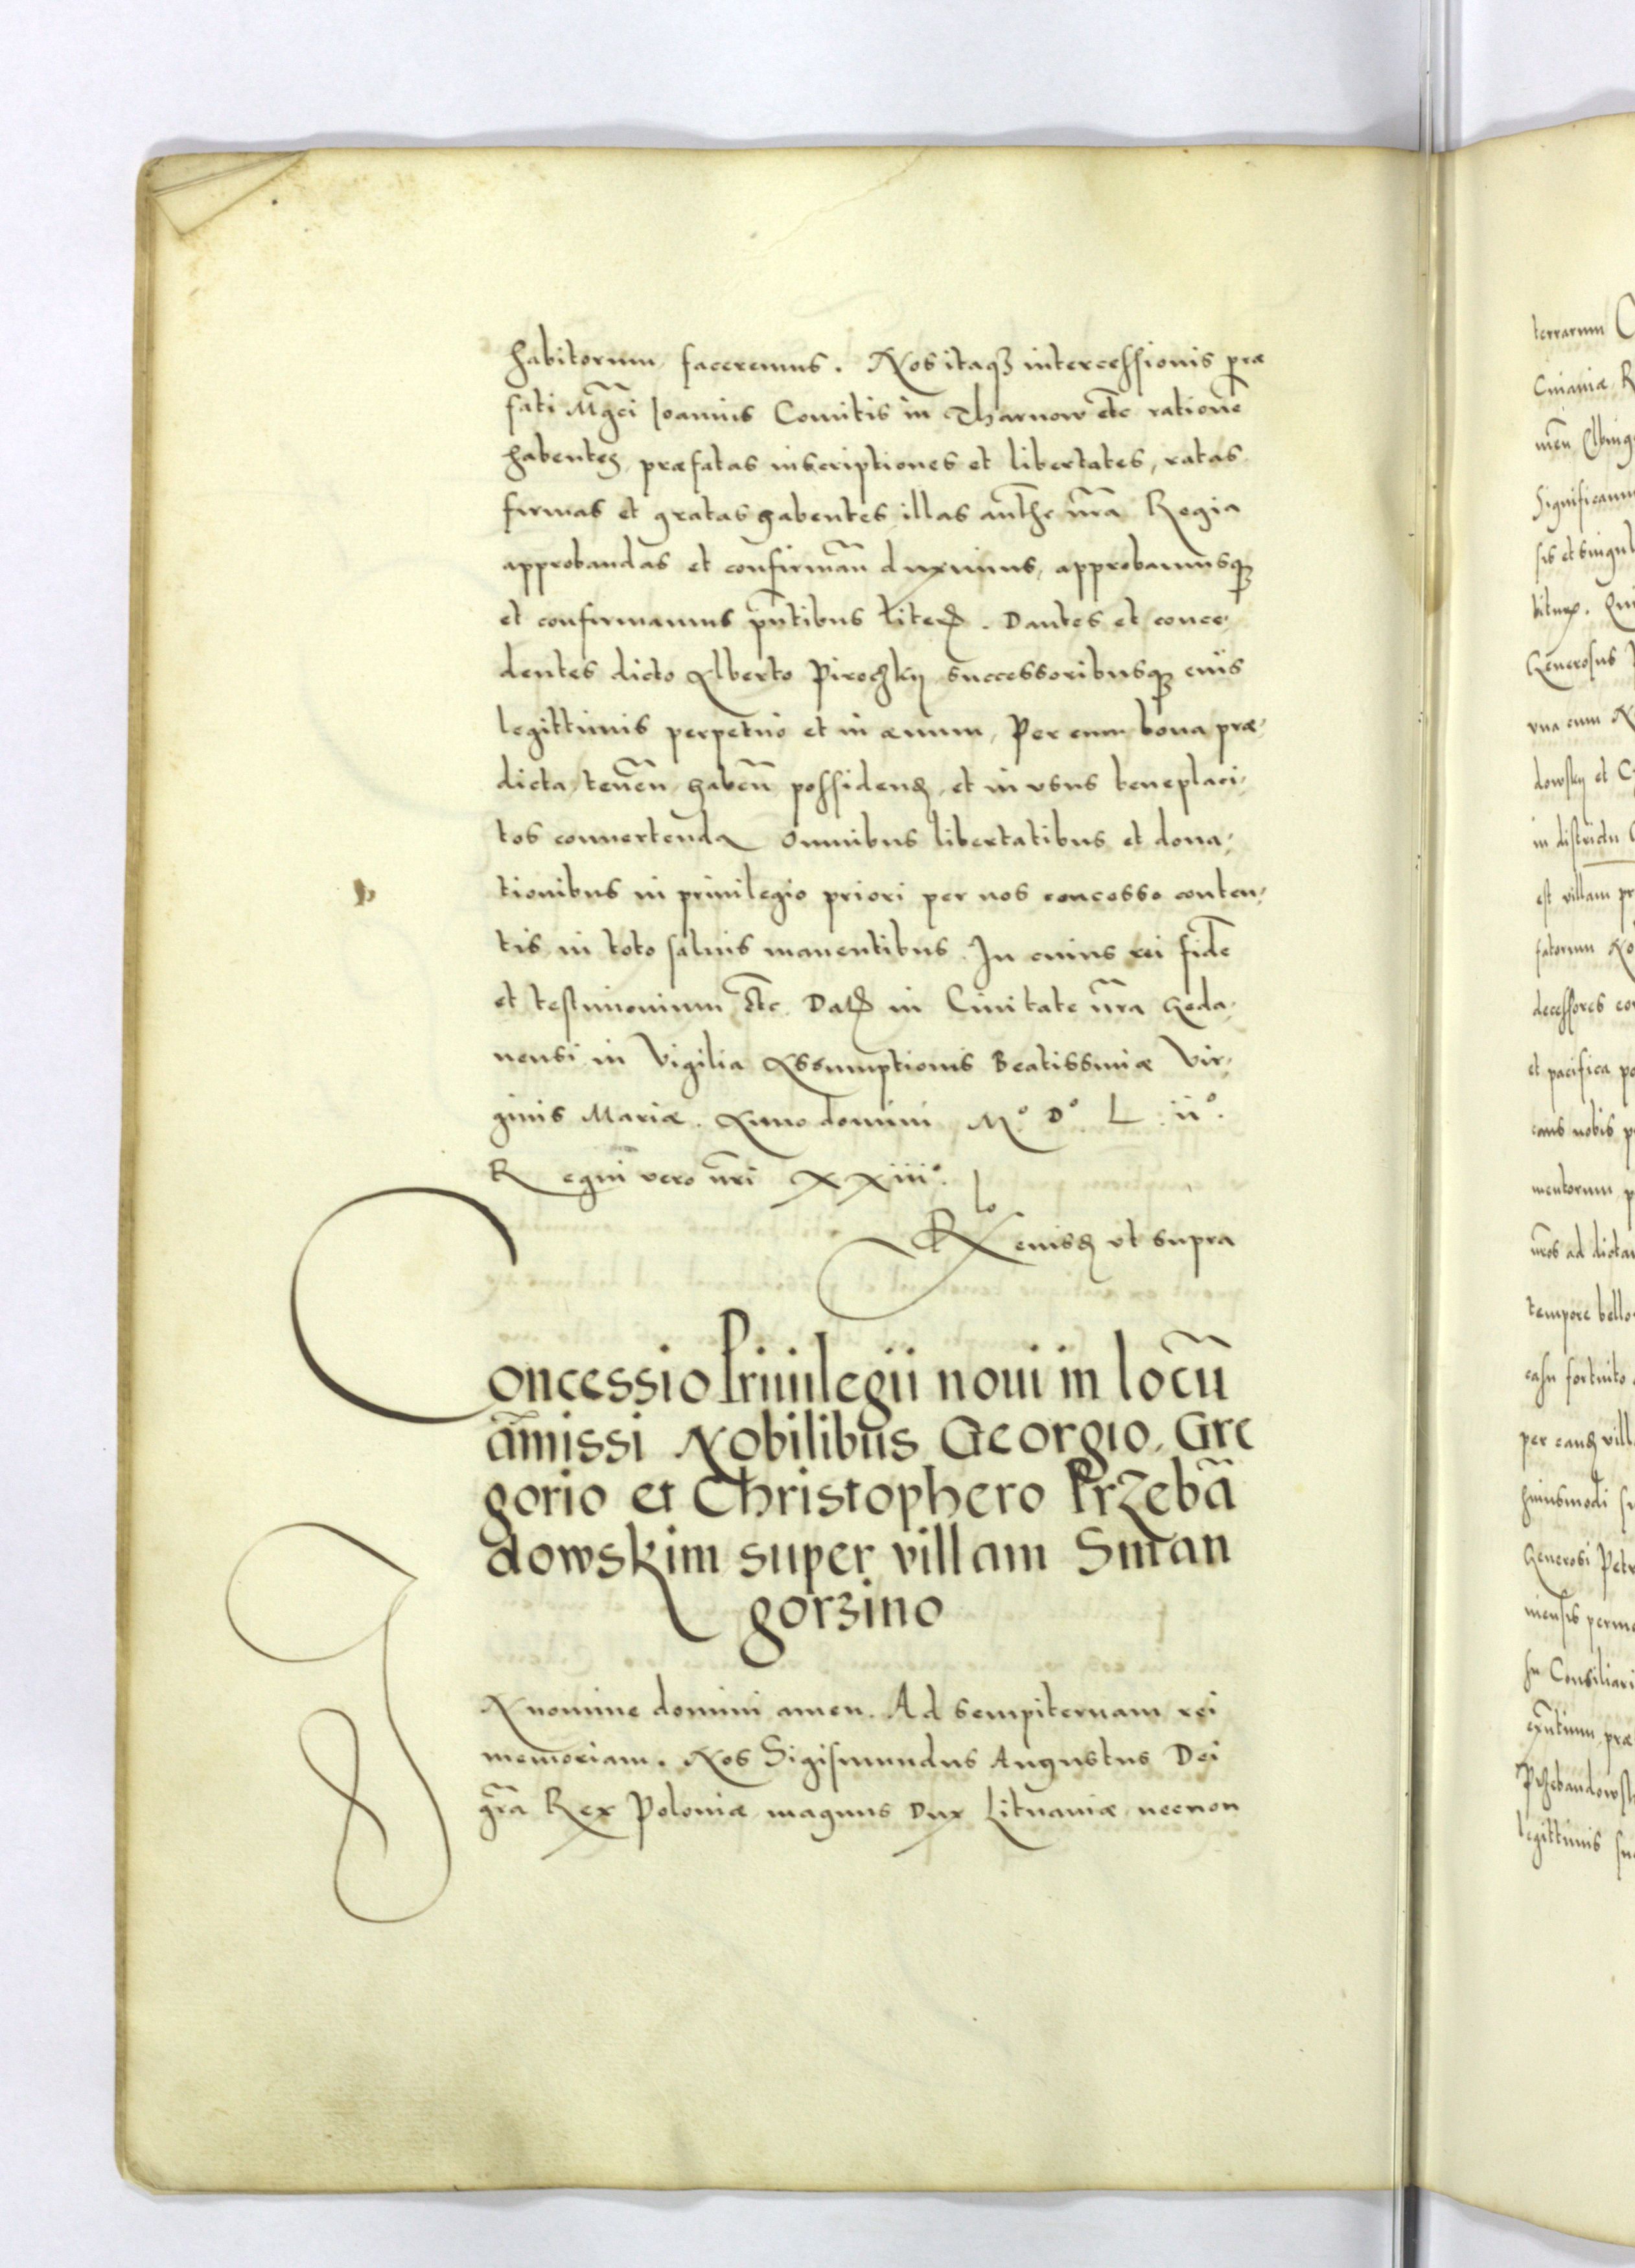 habitorum, faceremus. Nos itaq₃ intercessionis præ
fati Mg̃ci Joannis Comitis in Tharnow etc̃ rationẽ
habentes, præfatas inscriptiones et libertates, ratas
firmas et gratas habentes, illas authe nr̃a Regia
approbandas et confirmañ duximus, approbamusq₃
et confirmamus pñtibus literꝭ. Dantes et conce-
dentes dicto Alberto Piroskij successoribusq₃ eius
legittimis perpetuo et in æuum, Per eum bona præ-
dicta, teneñ, habeñ possidendꝭ, et in vsus beneplaci-
tos conuertenda Omnibus libertatibus et dona-
tionibus in priuilegio priori per nos concesso conten-
tis in toto saluis manentibus. In cuius rei fidẽ
et testimonium etc̃. Datꝭ in Ciuitate nr̃a Geda-
nensi in Vigilia Assumptionis Beatissimæ Vir-
ginis Mariæ. Anno domini M° D° L ii°.
Regni vero nr̃i XXiii°.
ut supra
Concessio Priuilegii noui in locũ
amissi Nobilibus Georgio, Gre
gorio et Christophero Przebã
dowskim super villam Sman
gorzino
IN nomine domini amen. Ad sempiternam rei
memoriam. Nos Sigismundus Augustus Dei
gr̃a Rex Poloniæ, magnus Dux Lituaniæ, necnon
terrarum
Significamus
Generosus
vna cum
dowskij et
in districtu
est villam
fatorum
decessores
et pacifica
nobis
mentorum
ad dictam
tempore
casu fortuito
huiusmodi
Generosi Petr
Consiliari
legittimis